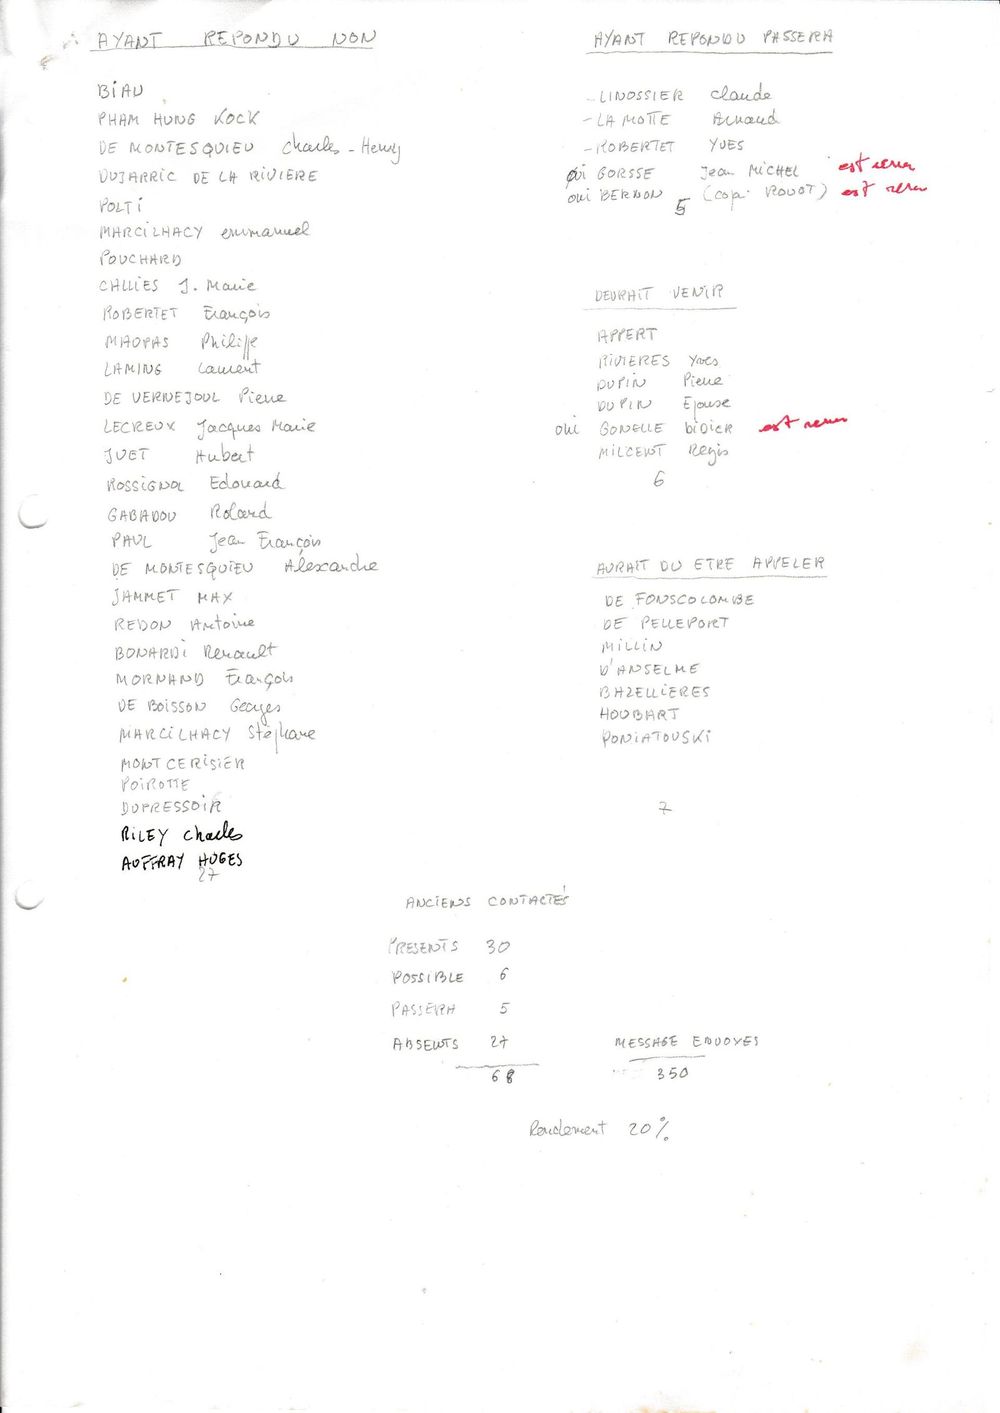 AYANT REPONDU NON
BIAU
PHAM HUNG KOCK
DE MONTESQUIEU Charles-Henry
DUJARRIC DE LA RIVIERE
POLTI
MARCILHACY emmanuel
POUCHARD
CALLIES J. Marie
ROBERTET François
MAOPAS Philippe
LAMING Laurent
DE VERNEJOUL Pierre
LECREUX Jacques Marie
JUET Hubert
ROSSIGNOL Edouard
GABADOU Roland
PAUL Jean François
DE MONTESQUIEU Alexandre
JAMMET MAX
REDON Antoine
BONARDI Renault
MORNAND François
DE BOISSON Georges
MARCILHACY Stéphane
MONTCERISIER
POIROTTE
DUPRESSOIR
RILEY Charles
AUFFRAY HUGES
27
AYANT REPONDU PASSERA
- LINOSSIER Claude
- LA MOTTE Arnaud
- ROBERTET YVES
oui GORSSE Jean MICHEL est venu
oui BERDON (copi ROUOT) est venu
5
DEVRAIT VENIR
APPERT
RIVIERES Yves
DUPIN Pierre
DUPIN Epouse
oui GONELLE DIDIER est venu
MILCENT Regis
6
AURAIT DU ETRE APPELER
DE FONSCOLOMBE
DE PELLEPORT
MILLIN
D'ANSELME
BAZELLIERES
HOUBART
PONIATOUSKI
7
ANCIENS CONTACTÉS
PRESENTS 30
POSSIBLE 6
PASSERA 5
ABSENTS 27
68
MESSAGE ENVOYES
350
Rendement 20%